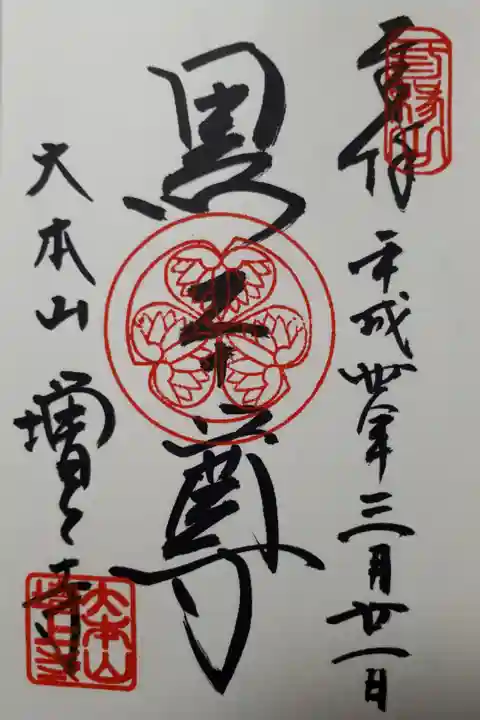 三縁山
奉拝 平成丗年三月廿一日
黒本尊
大本山 増上寺
大本山増上寺